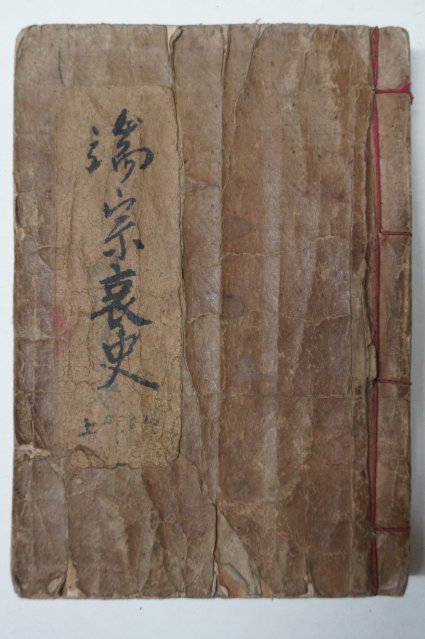 端宗哀史
上